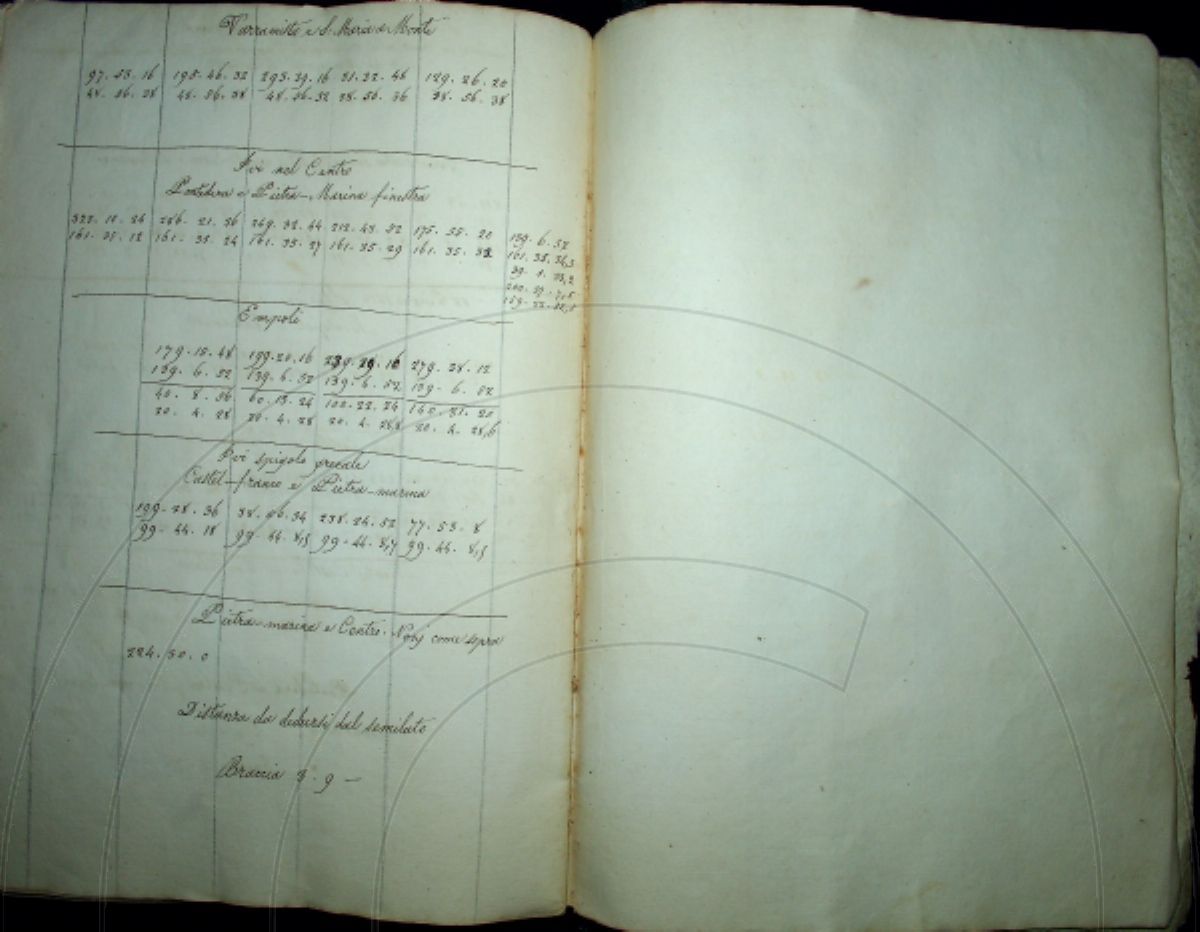 Varramista e S. Maria a Monte
97. 53. 16 195. 46. 32 293. 39. 16 31. 22. 48 129. 26. 20
48. 56. 38 48. 56. 38 48. 56. 32 38. 56. 36 38. 56. 38
Ivi nel Centro
Pontedera e Pietra-Marina finestra
322. 10. 24 286. 21. 36 249. 32. 44 212. 43. 52 175. 55. 20 139. 6. 52
161. 35. 12 161. 35. 24 161. 35. 27 161. 35. 29 161. 35. 32 161. 35. 34,3
39. 1. 23,2
159. 22.
Empoli
179. 15. 48 199. 20. 16 239. 29. 16 279. 38. 12
139. 6. 52 139. 6. 52 139. 6. 52 139. 6. 52
40. 8. 56 60. 13. 24 100. 22. 24 140. 31. 20
20. 4. 28 20. 4. 28 20. 4. 28,8 20. 4. 28,6
Ivi spigolo
Castel-franco e Pietra-marina
199. 28. 36 38. 56. 34 238. 24. 52 77. 53. 8
99. 44. 18 99. 44. 8,5 99. 44. 8,7 99. 44. 8,5
Pietra-marina e Centro. Nobj come sopra
224. 30. 0
Distanza da dedursi dal semilato
Braccia 3. 9 —